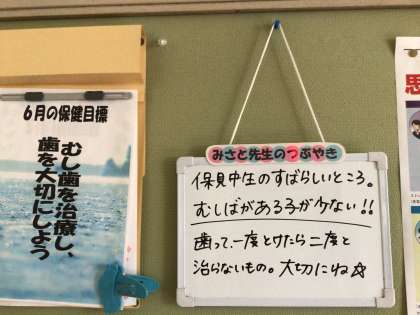 6月の保健目標
むし歯を治療し、
歯を大切にしよう
みさと先生のつぶやき
保見中生のすばらしいところ。
むしばがある子が少ない!!
歯って、一度とけたら二度と
治らないもの。大切にね☆
思